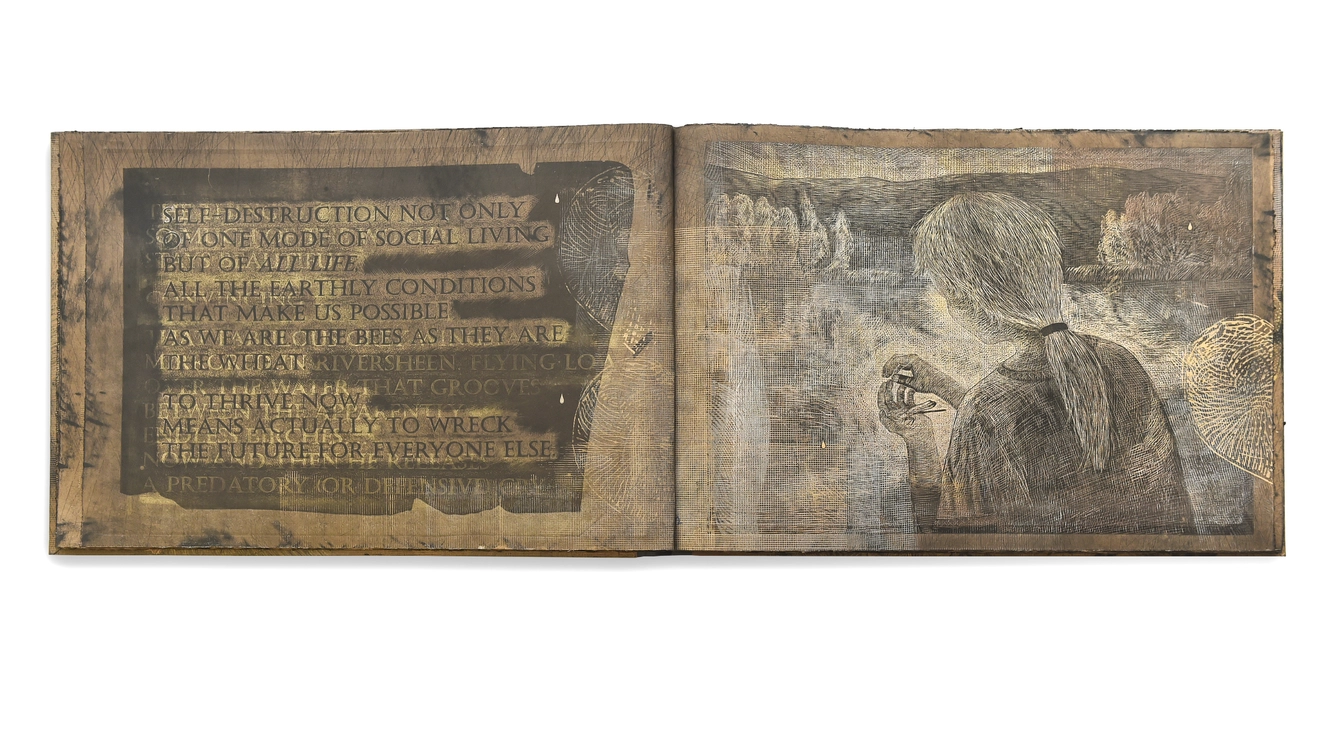 SELF-DESTRUCTION NOT ONLY
OF ONE MODE OF SOCIAL LIVING
BUT OF ALL LIFE,
ALL THE EARTHLY CONDITIONS
THAT MAKE US POSSIBLE
AS WE ARE, THE BEES AS THEY ARE
THE WHEAT RIVERSHEEN, FLYING-LO
OVER THE WATER THAT GROOVES
TO THRIVE NOW
MEANS ACTUALLY TO WRECK
THE FUTURE FOR EVERYONE ELSE,
NOW AND THEN HE RELEASES
A PREDATORY (OR DEFENSIVE)